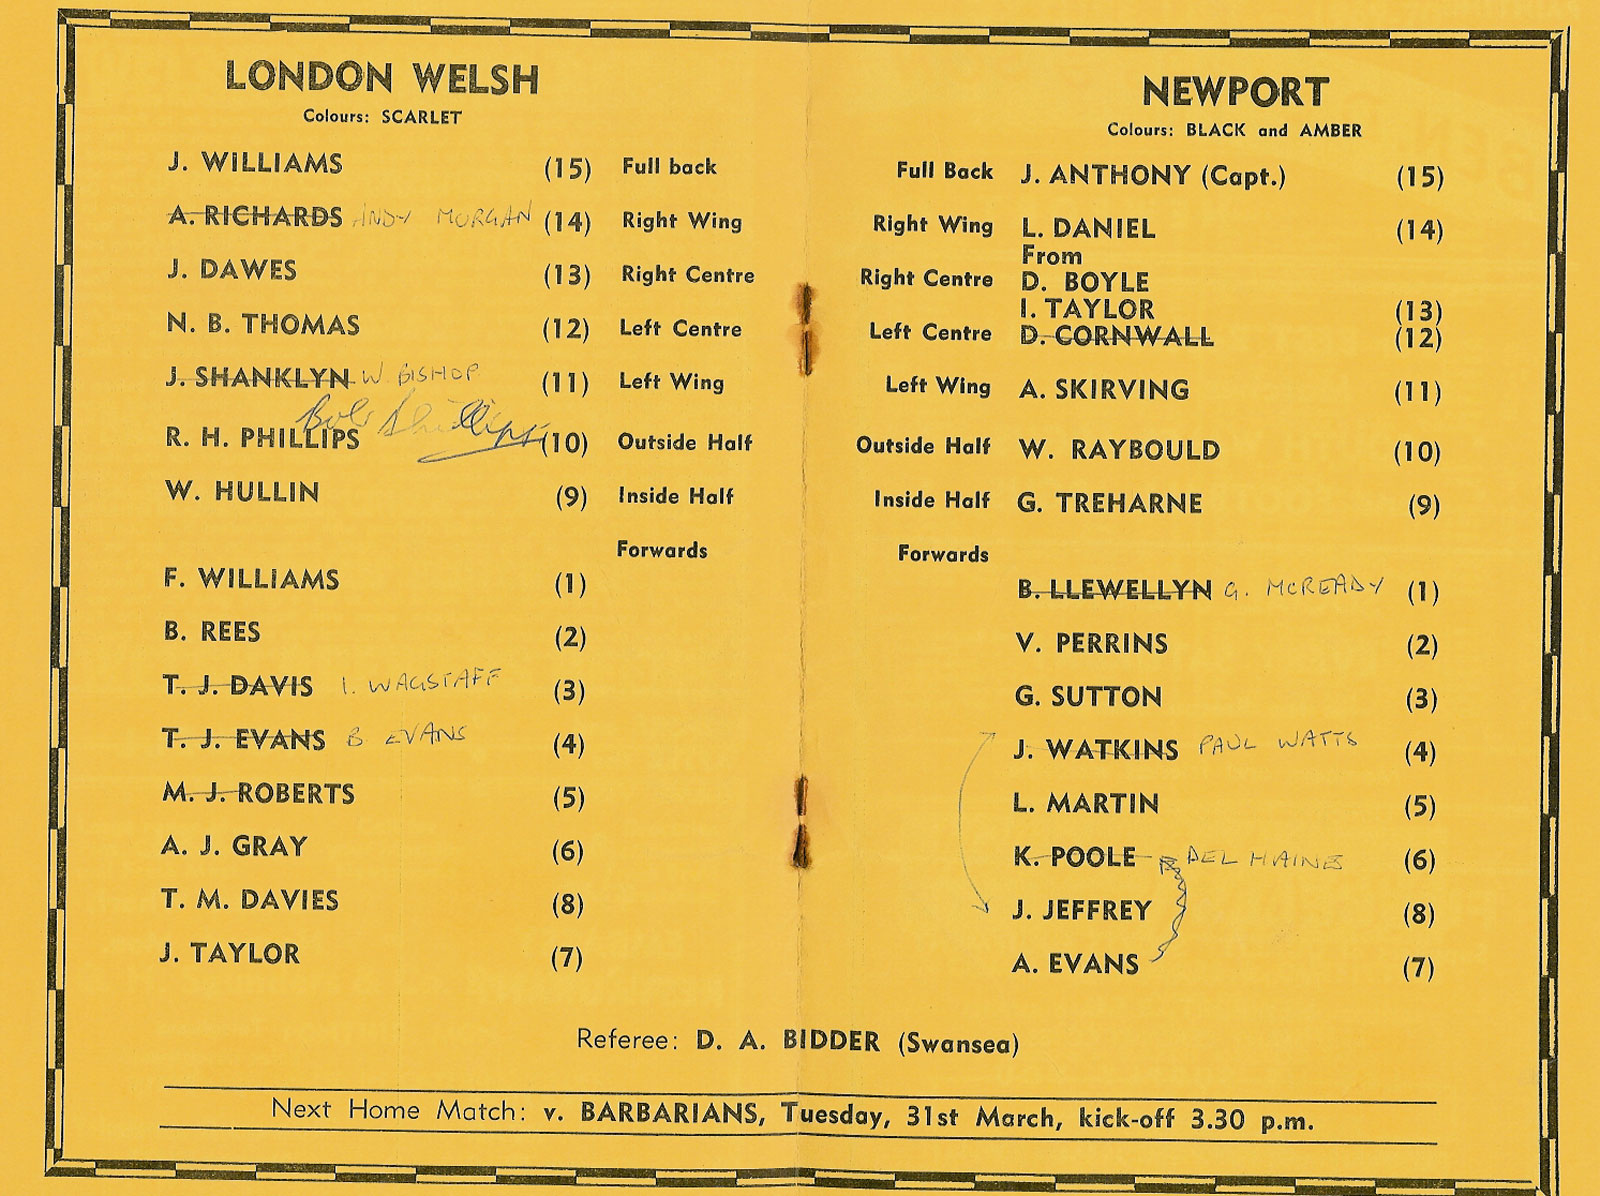 LONDON WELSH
Colours: SCARLET
J. WILLIAMS (15) Full back
A. RICHARDS ANDY MORGAN (14) Right Wing
J. DAWES (13) Right Centre
N. B. THOMAS (12) Left Centre
J. SHANKLYN W. BISHOP (11) Left Wing
Bob Phillips
R. H. PHILLIPS (10) Outside Half
W. HULLIN (9) Inside Half
Forwards
F. WILLIAMS (1)
B. REES (2)
T. J. DAVIS I. WAGSTAFF (3)
T. J. EVANS B EVANS (4)
M. J. ROBERTS (5)
A. J. GRAY (6)
T. M. DAVIES (8)
J. TAYLOR (7)
NEWPORT
Colours: BLACK and AMBER
Full Back J. ANTHONY (Capt.) (15)
Right Wing L. DANIEL (14)
From
Right Centre D. BOYLE
I. TAYLOR (13)
Left Centre D. CORNWALL (12)
Left Wing A. SKIRVING (11)
Outside Half W. RAYBOULD (10)
Inside Half G. TREHARNE (9)
Forwards
B. LLEWELLYN G. MCREADY (1)
V. PERRINS (2)
G. SUTTON (3)
J. WATKINS PAUL WATTS (4)
L. MARTIN (5)
K. POOLE DEL HAINES (6)
J. JEFFREY (8)
A. EVANS (7)
Referee: D. A. BIDDER (Swansea)
Next Home Match: v. BARBARIANS, Tuesday, 31st March, kick-off 3.30 p.m.